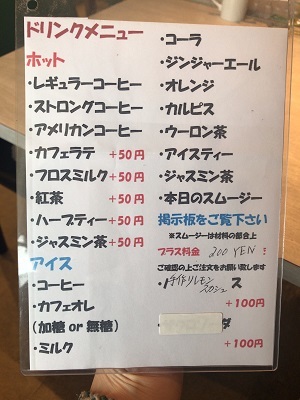 ドリンクメニュー
ホット
・レギュラーコーヒー
・ストロングコーヒー
・アメリカンコーヒー
・カフェラテ +50円
・フロスミルク +50円
・紅茶 +50円
・ハーブティー +50円
・ジャスミン茶 +50円
アイス
・コーヒー
・カフェオレ
(加糖 or 無糖)
・ミルク
・コーラ
・ジンジャーエール
・オレンジ
・カルピス
・ウーロン茶
・アイスティー
・ジャスミン茶
・本日のスムージー
掲示板をご覧下さい
※スムージーは材料の都合上
プラス料金 200 YEN
ご確認の上ご注文をお願い致します
・手作りレモンスカッシュ
+100円
+100円